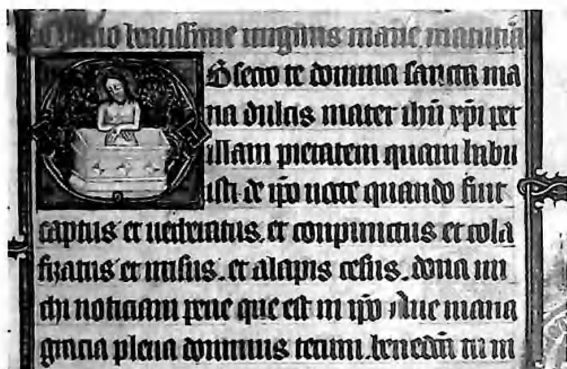 beatissime uirginis marie
OBsecro te domina sancta ma
ria dulcis mater ihu xpi per
illam pietatem quam habu
isti de ipo nocte quando fuit
captus et et conpunctus et cola
fizatus et irrisus. et alapis cesus. dona mi
chi noticiam pene que est in ipo Aue maria
gracia plena dominus tecum. tu in